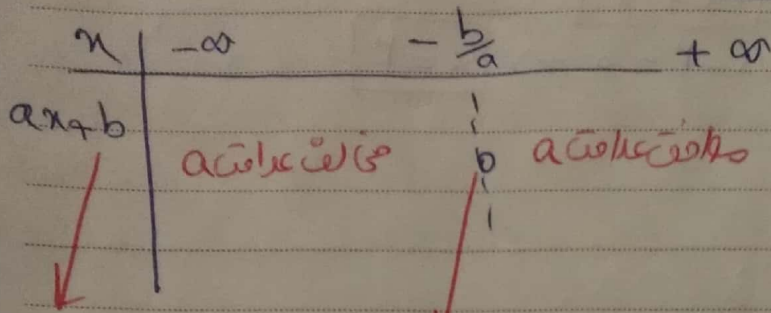 x -∞ -b/a +∞
ax+b مخالف علامت a 0 موافق علامت a